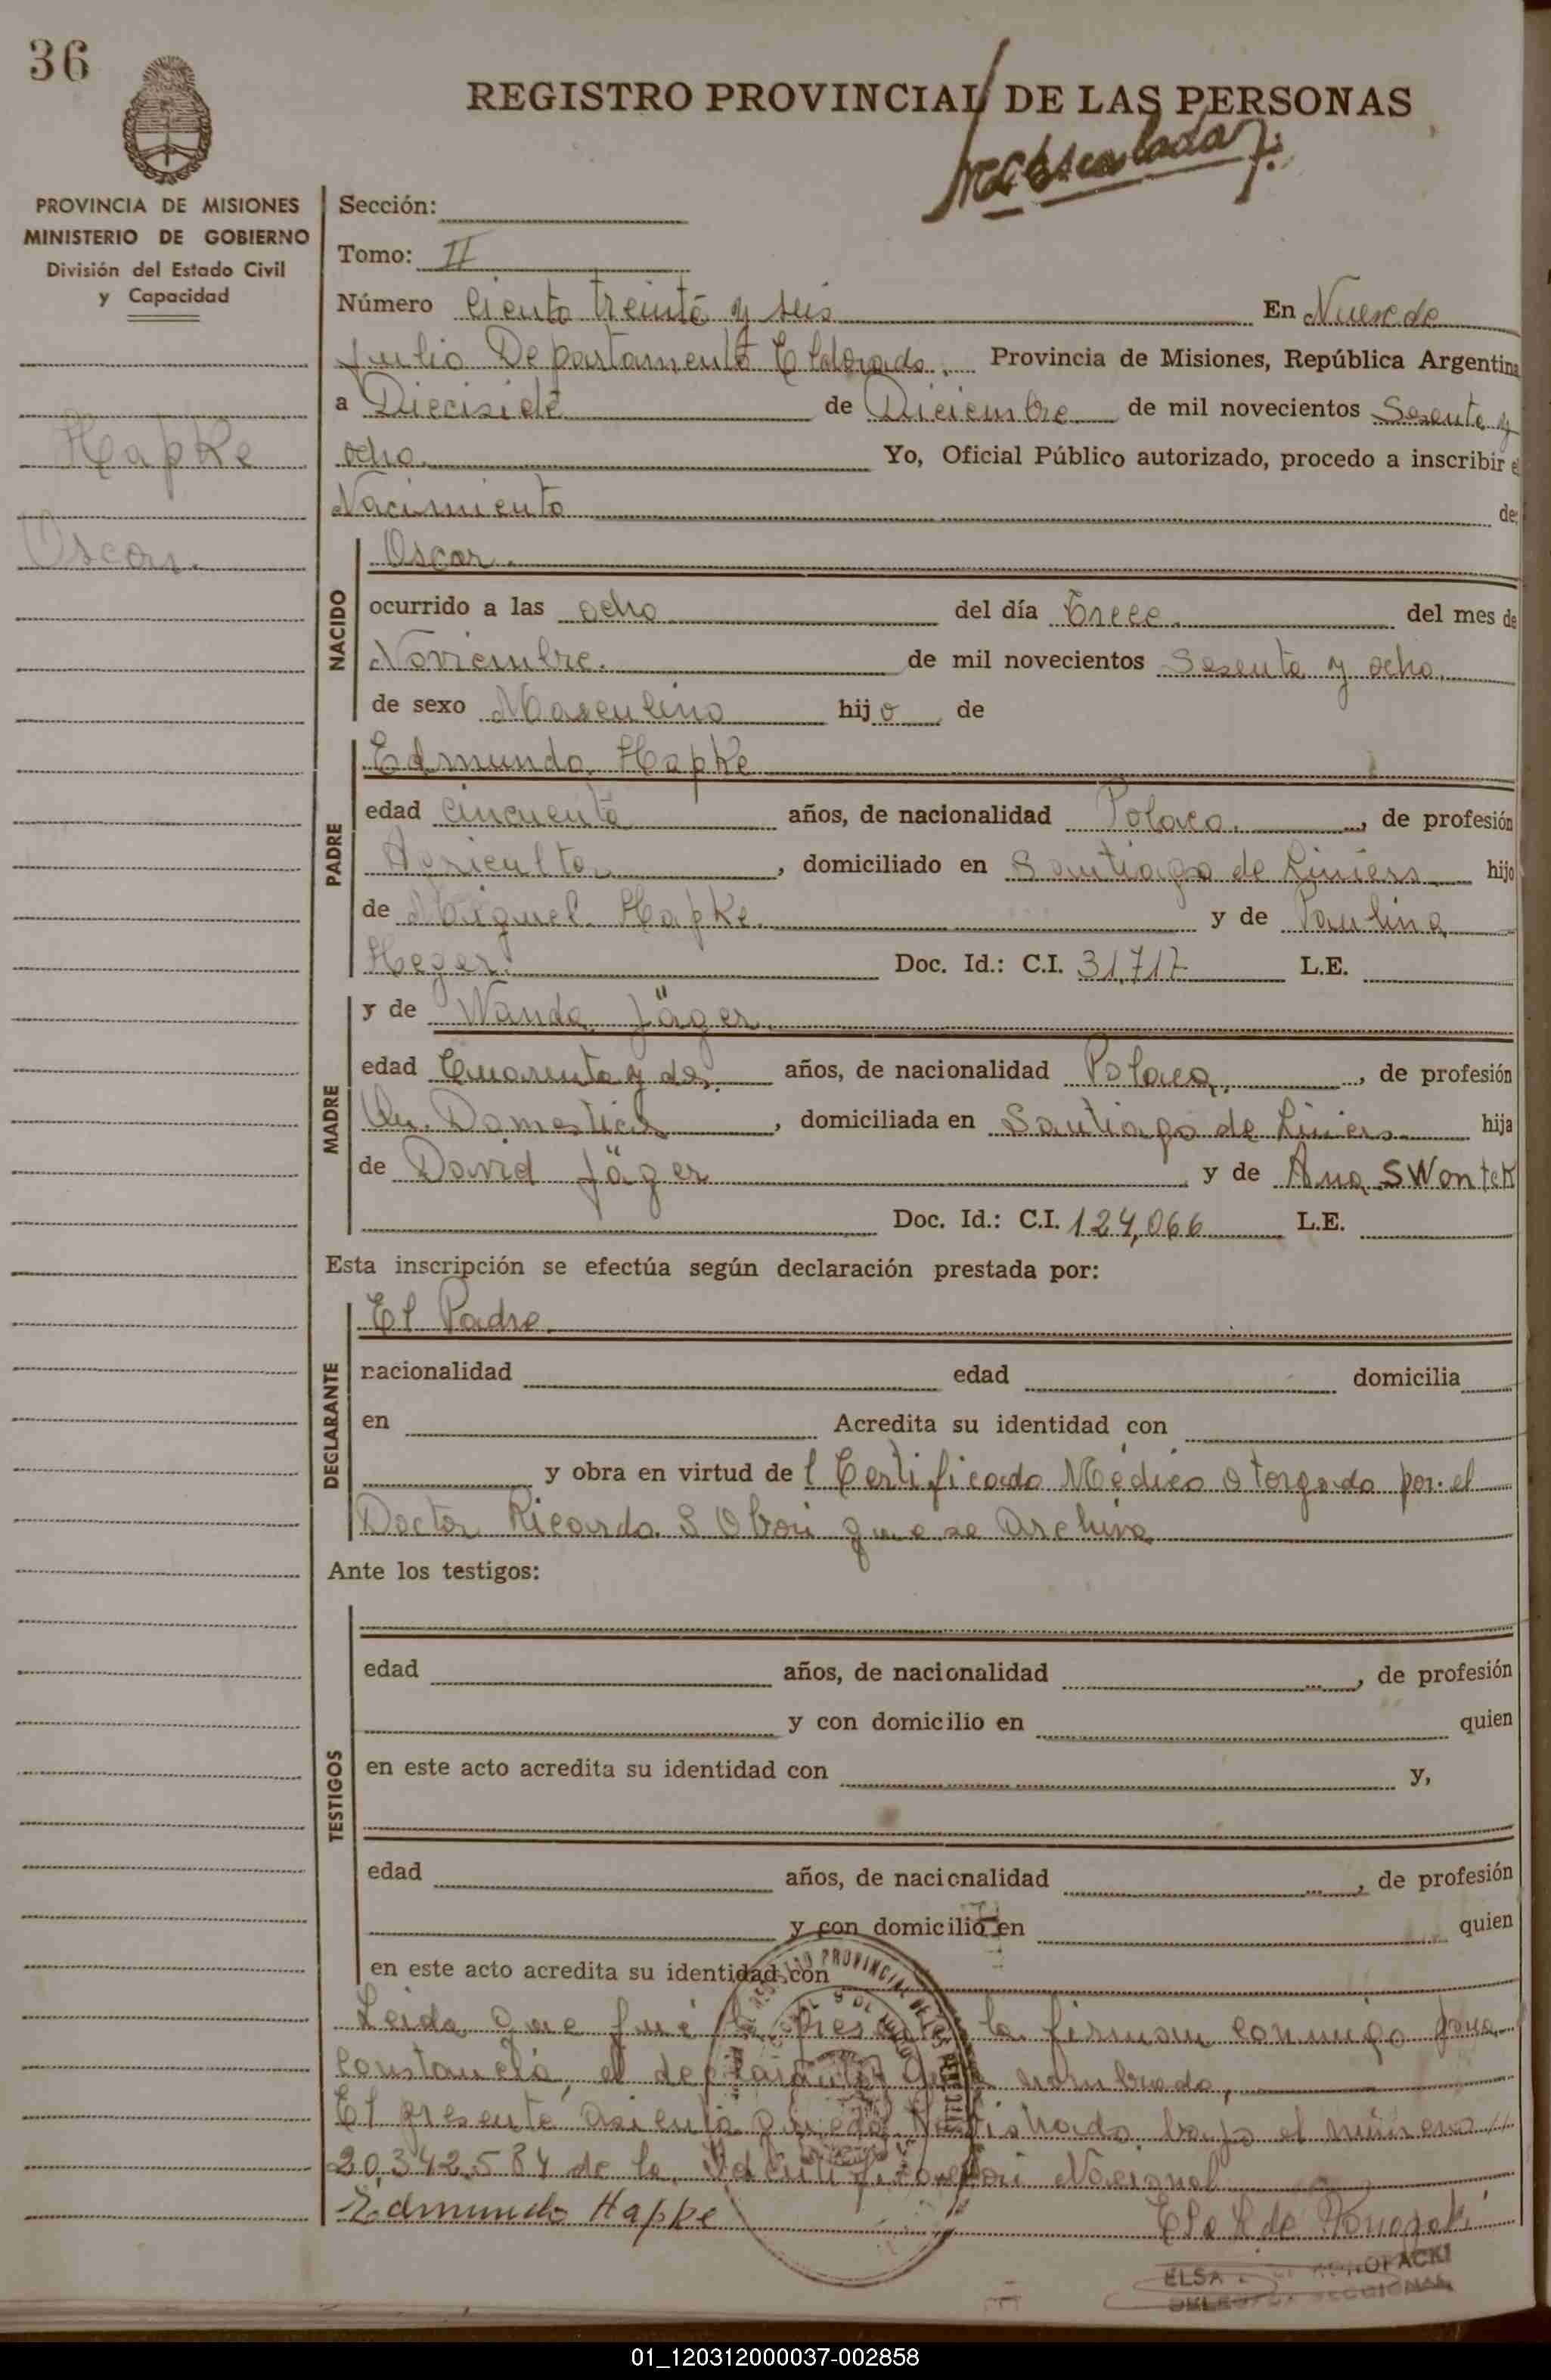 36
REGISTRO PROVINCIAL DE LAS PERSONAS
PROVINCIA DE MISIONES
MINISTERIO DE GOBIERNO
División del Estado Civil
y Capacidad
Hapke
Oscar.
Sección:
Tomo: II
Número Ciento treinta y seis En Nueve de
Julio Departamento Eldorado. Provincia de Misiones, República Argentina
a Diecisiete de Diciembre de mil novecientos Sesenta y
ocho Yo, Oficial Público autorizado, procedo a inscribir e
Nacimiento de:
NACIDO
Oscar.
ocurrido a las ocho del día trece. del mes de
Noviembre. de mil novecientos Sesenta y ocho.
de sexo Masculino hijo de
PADRE
Edmundo Hapke
edad cincuenta años, de nacionalidad Polaca, de profesión
Agricultor, domiciliado en Santiago de Liniers hijo
de Miguel Hapke y de Paulina
Heger. Doc. Id.: C.I. 31,717 L.E.
MADRE
y de Wanda Jäger
edad Cuarenta y dos años, de nacionalidad Polaca, de profesión
Domesticos, domiciliada en Santiago de Liniers hija
de David Jäger y de Ana SWontek
Doc. Id.: C.I. 124,066 L.E.
Esta inscripción se efectúa según declaración prestada por:
DECLARANTE
El Padre
nacionalidad edad domicilia
en Acredita su identidad con
y obra en virtud del Certificado Médico otorgado por el
Doctor Ricardo S que se archiva
Ante los testigos:
TESTIGOS
edad años, de nacionalidad , de profesión
y con domicilio en quien
en este acto acredita su identidad con y,
edad años, de nacionalidad , de profesión
y con domicilio en quien
en este acto acredita su identidad con
Leida que fué la presente la firman conmigo para
constancia, el declarante nombrado,
El presente asiento queda bajo el número
20,342,584 de la Identificación Nacional
Edmundo Hapke Elsa R de Konopacki
ELSA KONOPACKI
SECCIONAL
01_120312000037-002858